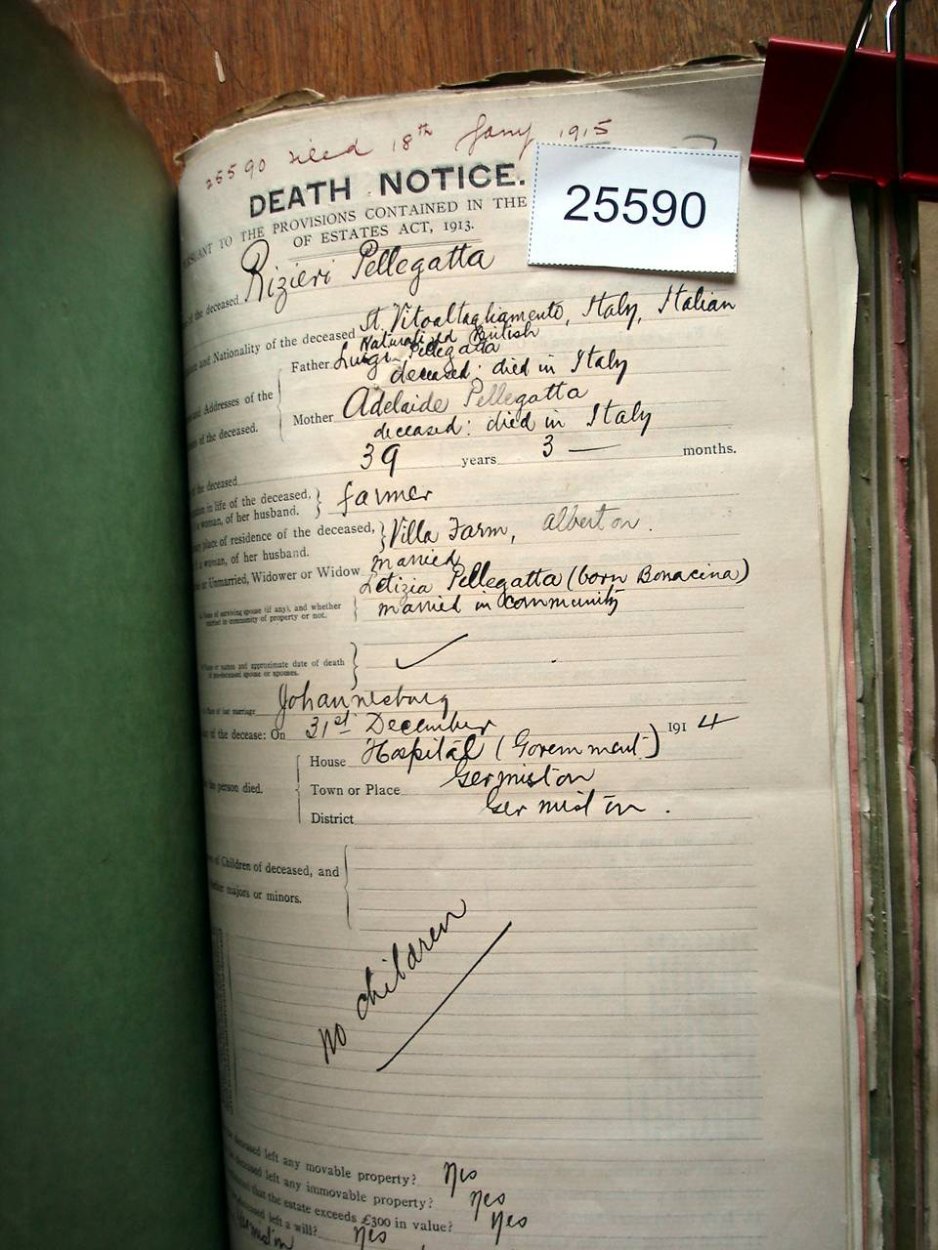 25590 filed 18th Jany 1915
DEATH NOTICE.
25590
TO THE PROVISIONS CONTAINED IN THE
OF ESTATES ACT, 1913.
of the deceased Rizieri Pellegatta
and Nationality of the deceased St. Vitoaltagliamento, Italy, Italian
Naturalized British
Father Luigi Pellegatta
deceased: died in Italy
Addresses of the
of the deceased.
Mother Adelaide Pellegatta
deceased: died in Italy
of the deceased 39 years 3 — months.
in life of the deceased, farmer
a woman, of her husband.
place of residence of the deceased, Villa Farm, Alberton.
a woman, of her husband.
or Unmarried, Widower or Widow married
Letizia Pellegatta (born Bonacina)
of surviving spouse (if any), and whether
married in community of property or not. married in community
or names and approximate date of death
of pre-deceased spouse or spouses.
Place of last marriage Johannesburg
of the decease: On 31st December 1914
House Hospital (Government)
the person died.
Town or Place Germiston
District Germiston.
of Children of deceased, and
whether majors or minors.
no children
deceased left any movable property? Yes
deceased left any immovable property? Yes
that the estate exceeds £300 in value? Yes
deceased left a will? Yes